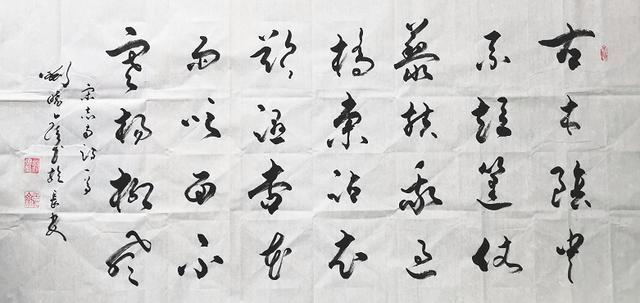 古木陰中
系短篷仗
藜扶我過
橋東沾衣
欲濕杏花
雨吹面不
寒楊柳風
宋志南詩一首
書於長安